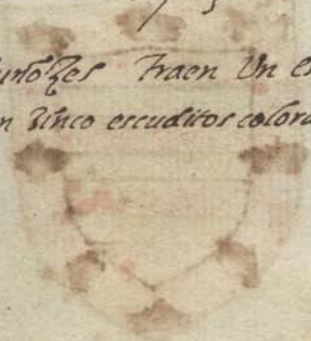 uñozes traen Un es
n Zinco escuditos colora